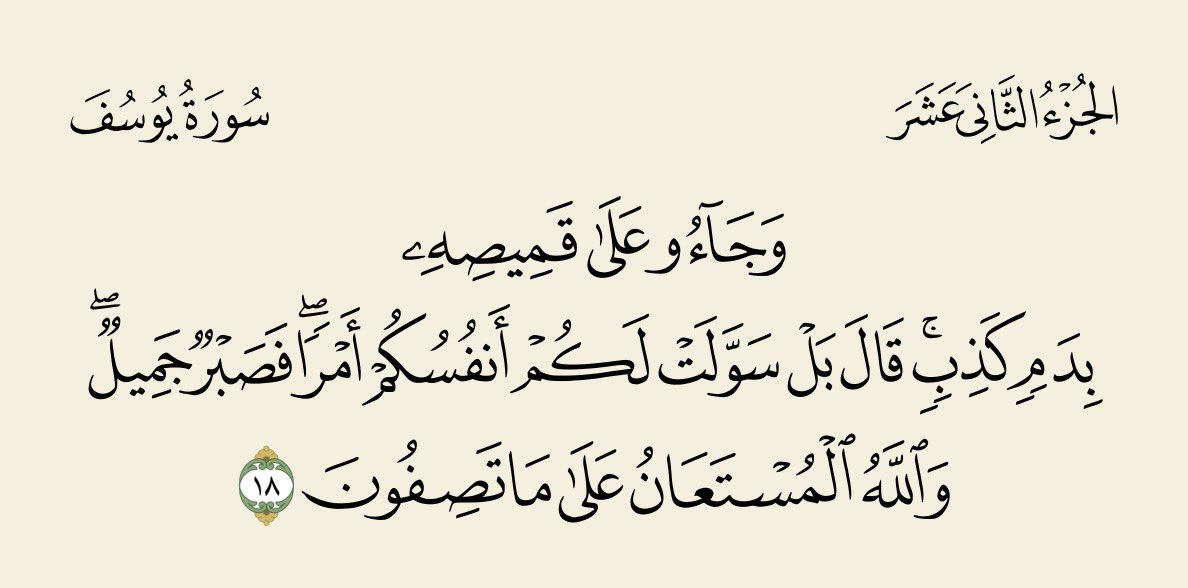 الجُزْءُ الثَّانِيَ عَشَرَ
سُورَةُ يُوسُفَ
وَجَآءُو عَلَىٰ قَمِيصِهِۦ
بِدَمٍ كَذِبٍۚ قَالَ بَلْ سَوَّلَتْ لَكُمْ أَنفُسُكُمْ أَمْرًاۖ فَصَبْرٌ جَمِيلٌۖ
وَٱللَّهُ ٱلْمُسْتَعَانُ عَلَىٰ مَا تَصِفُونَ ١٨